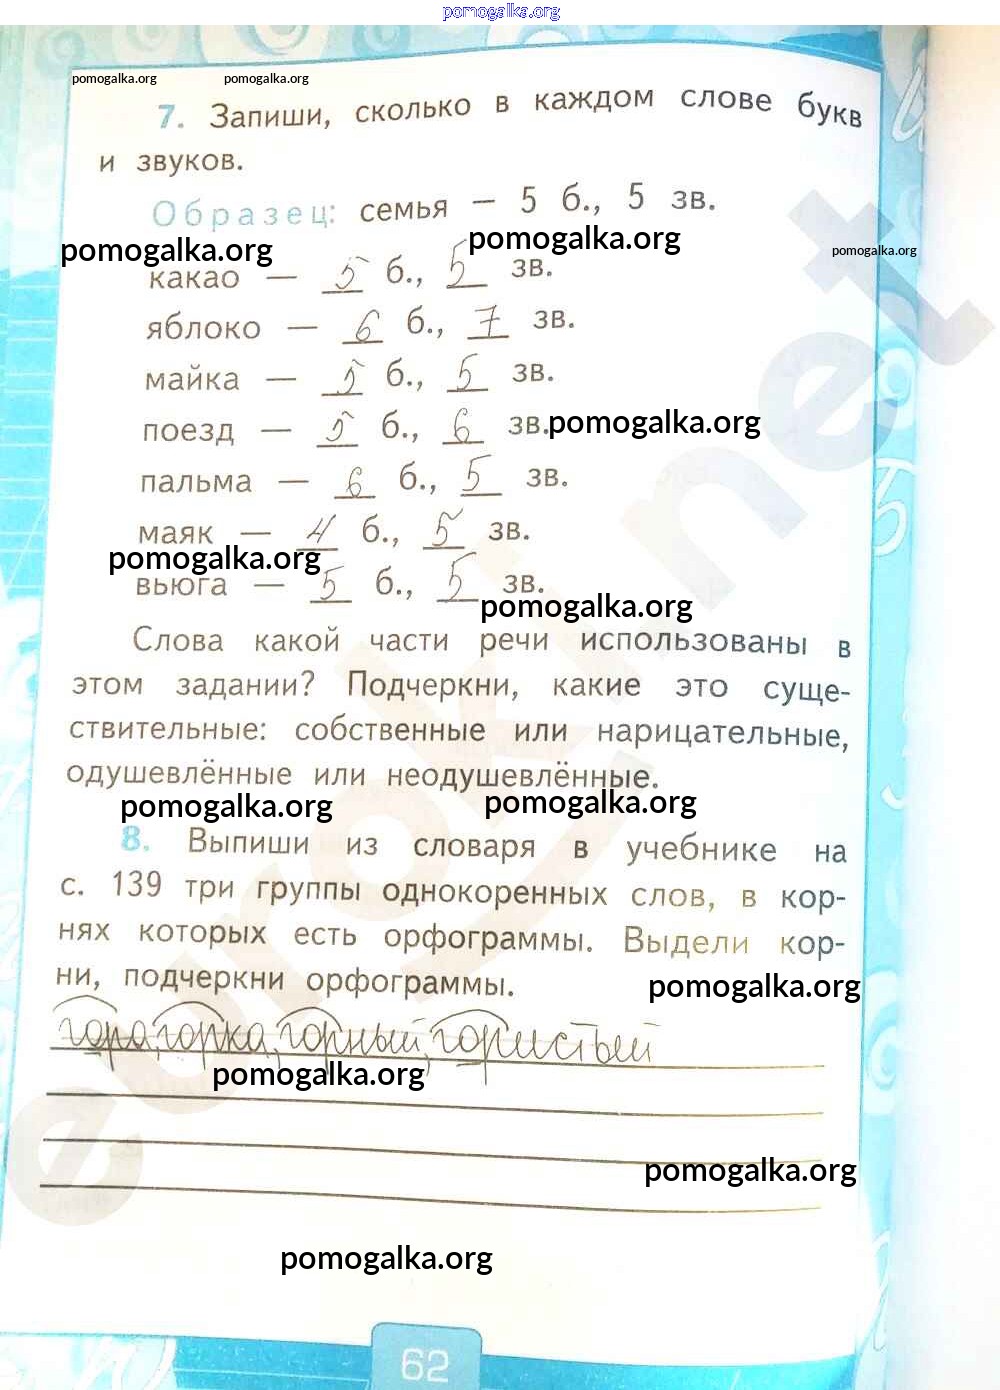 pomogalka.org
pomogalka.org pomogalka.org
7. Запиши, сколько в каждом слове букв
и звуков.
Образец: семья — 5 б., 5 зв.
pomogalka.org pomogalka.org pomogalka.org
какао — 5 б., 5 зв.
яблоко — 6 б., 7 зв.
майка — 5 б., 5 зв.
поезд — 5 б., 6 зв. pomogalka.org
пальма — 6 б., 5 зв.
маяк — 4 б., 5 зв.
pomogalka.org
вьюга — 5 б., 5 зв.
pomogalka.org
Слова какой части речи использованы в
этом задании? Подчеркни, какие это суще-
ствительные: собственные или нарицательные,
одушевлённые или неодушевлённые.
pomogalka.org pomogalka.org
8. Выпиши из словаря в учебнике на
с. 139 три группы однокоренных слов, в кор-
нях которых есть орфограммы. Выдели кор-
ни, подчеркни орфограммы.
pomogalka.org
гора, горка, горный, гористый
pomogalka.org
pomogalka.org
pomogalka.org
62
euroki.net